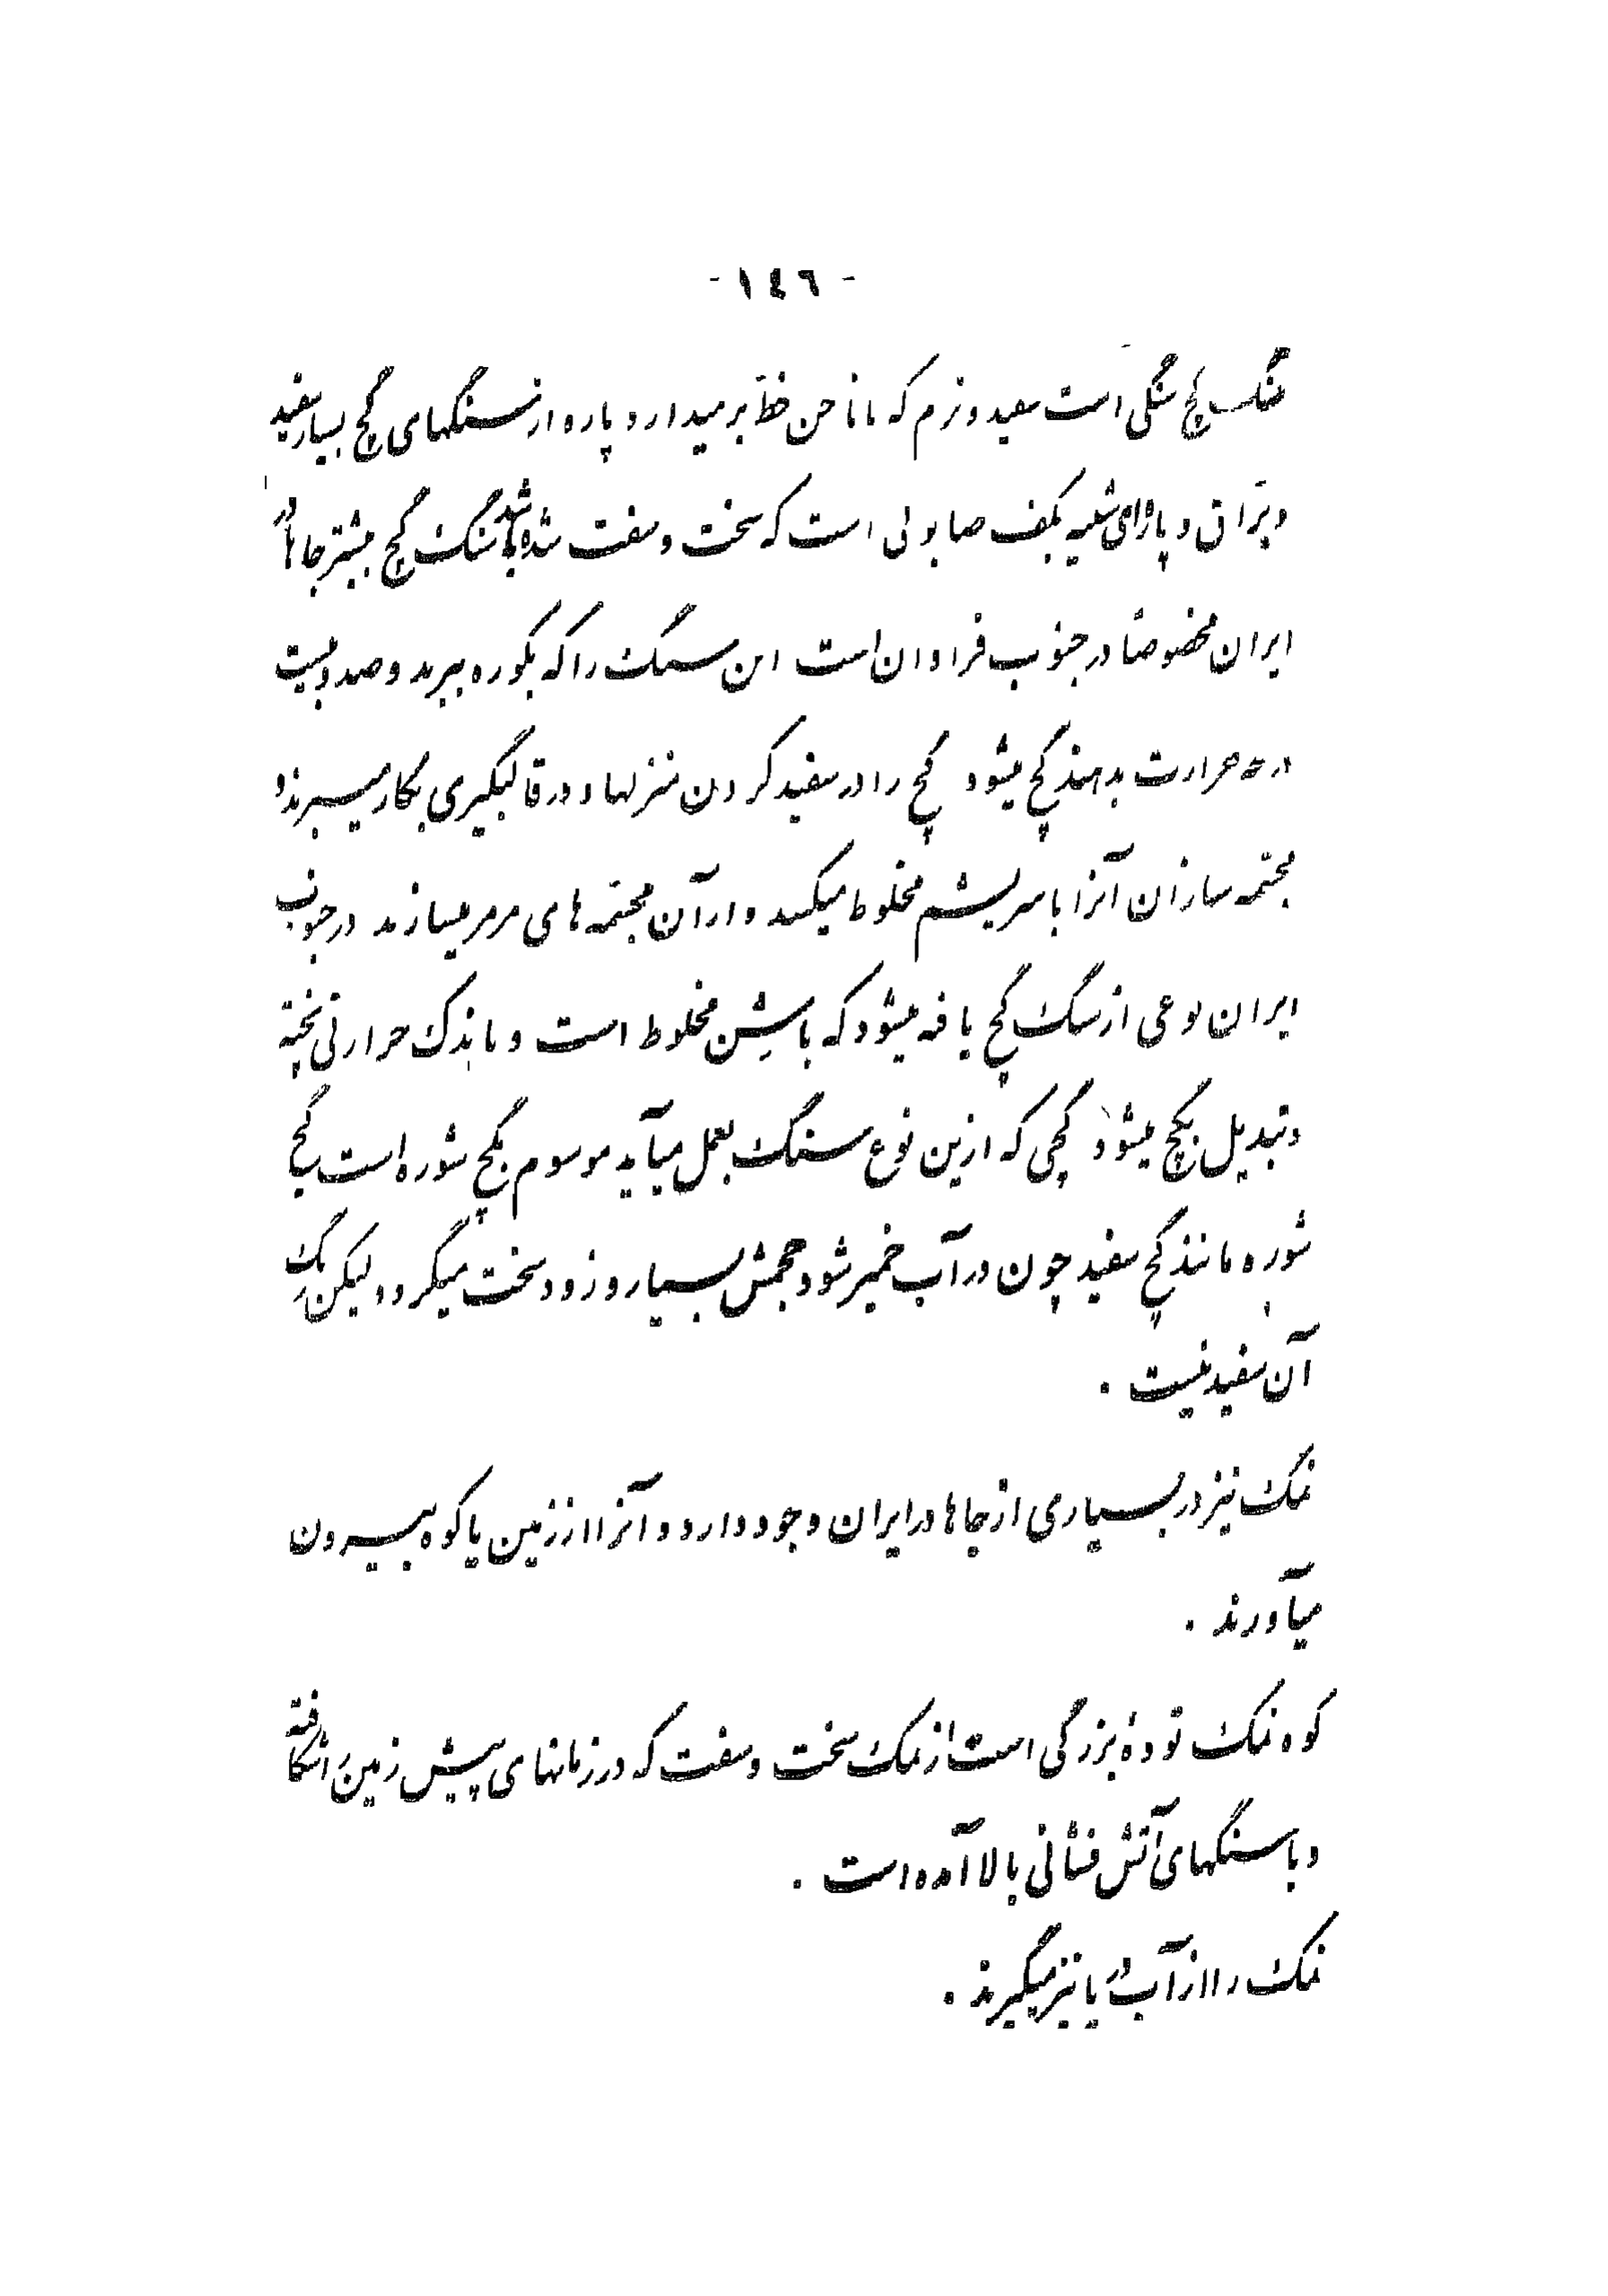 - ١٤٦ -
سنگ گچ سنگی است سفید و نرم که با ناخن خط برمیدارد و پاره از سنگهای گچ بسیار سفید
و برّاق و پاره‌ای شبیه بکف صابونی است که سخت و سفت شده باشد سنگ گچ بیشتر جاهای
ایران مخصوصاً در جنوب فراوان است این سنگ را که بکوره ببرند و صد و بیست
درجه حرارت بدهند گچ میشود گچ را در سفید کردن منزلها و در قالبگیری بکار میبرند و
مجسّمه سازان آنرا با سریشم مخلوط میکنند و از آن مجسّمه های مرمر میسازند در جنوب
ایران نوعی از سنگ گچ یافته میشود که با شِن مخلوط است و باندک حرارتی پخته
و تبدیل بگچ میشود گچی که ازین نوع سنگ بعمل میآید موسوم بگچ شوره است گچ
شوره مانند گچ سفید چون در آب خمیر شود حجمش بسیار و زود سخت میگردد لیکن رنگ
آن سفید نیست .
نمک نیز در بسیاری از جاها در ایران وجود دارد و آنرا از زمین یا کوه بیرون
میآورند .
کوه نمک تودهٔ بزرگی است از نمک سخت و سفت که در زمانهای پیش زمین را شکافته
و با سنگهای آتش فشانی بالا آمده است .
نمک را از آب دریا نیز میگیرند .